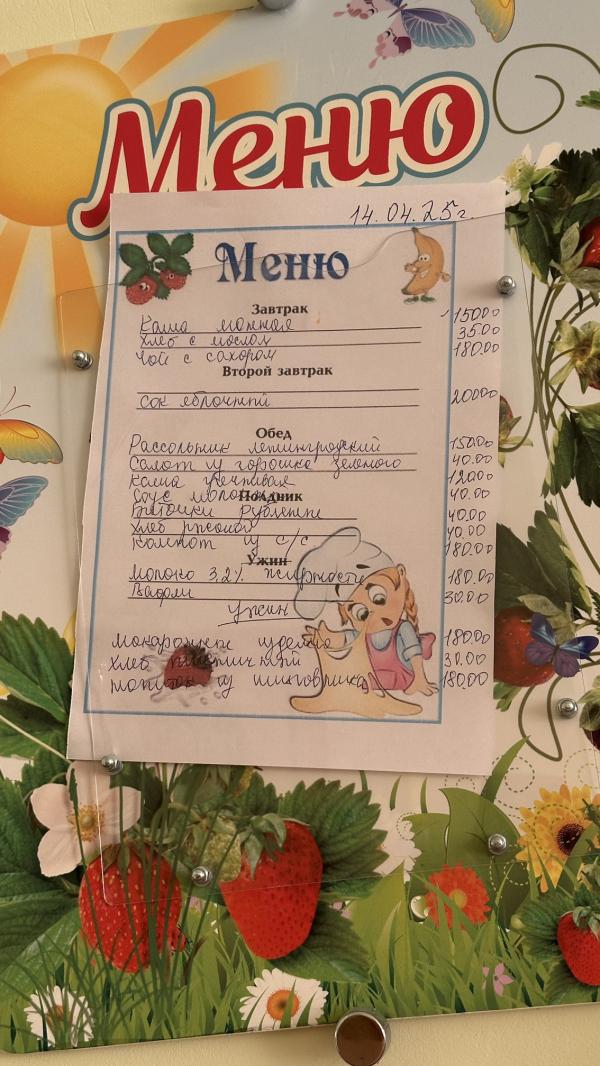 Меню
14.04.25г.
Меню
Завтрак
Каша манная 150.00
Хлеб с маслом 35.00
Чай с сахаром 180.00
Второй завтрак
Сок яблочный 200.00
Обед
Рассольник ленинградский 150.00
Салат из горошка зеленого 40.00
Каша гречневая 120.00
Соус молочный 40.00
Полдник
Биточки рубленые 40.00
Хлеб ржаной 40.00
Компот из с/с 180.00
Ужин
Молоко 3,2% жирности 180.00
Вафли 30.00
Ужин
Макаронные изделия 180.00
Хлеб пшеничный 30.00
напиток из шиповника 180.00